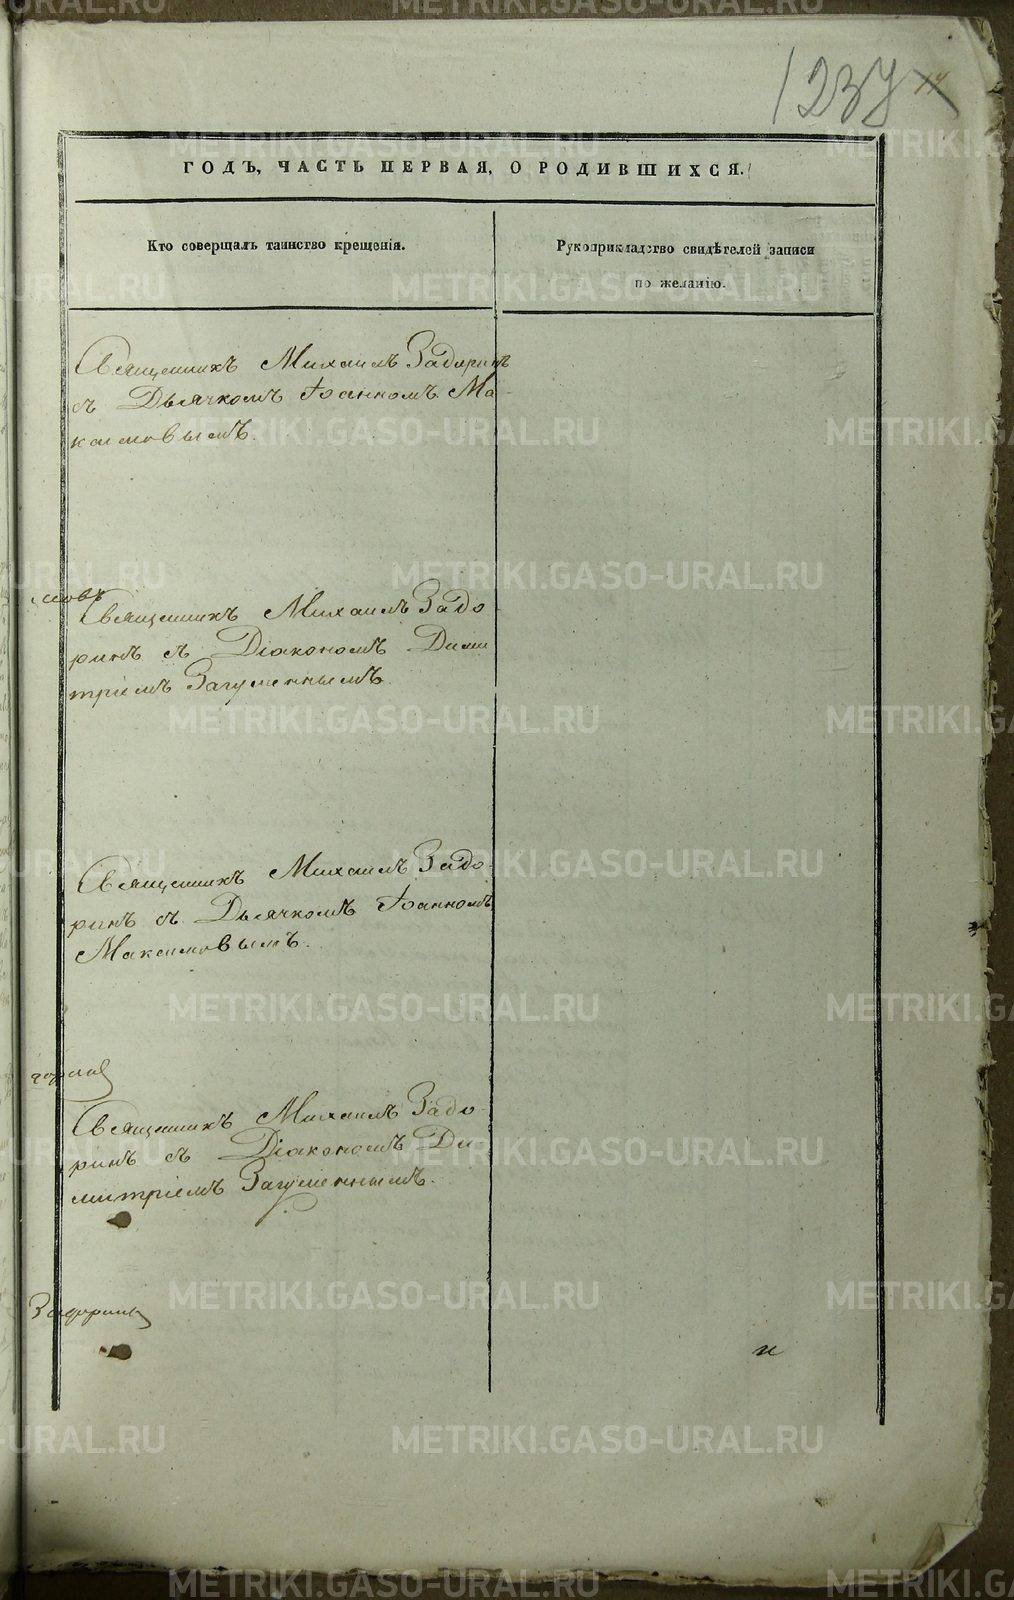 1237
ГОДЪ, ЧАСТЬ ПЕРВАЯ, О РОДИВШИХСЯ.
Кто совершалъ таинство крещенія.
Рукоприкладство свидѣтелей записи
по желанію.
Священникъ Михаилъ Задоринъ
съ Дьячкомъ Іоанномъ Ма-
ксимовымъ.
Священникъ Михаилъ Задо-
ринъ съ Діакономъ Дими
тріемъ Загуменнымъ.
Священникъ Михаилъ Задо-
ринъ съ Дьячкомъ Іоанномъ
Максимовымъ.
Священникъ Михаилъ Задо-
ринъ съ Діакономъ Ди-
митріемъ Загуменнымъ.
Задоринъ
и
METRIKI.GASO-URAL.RU